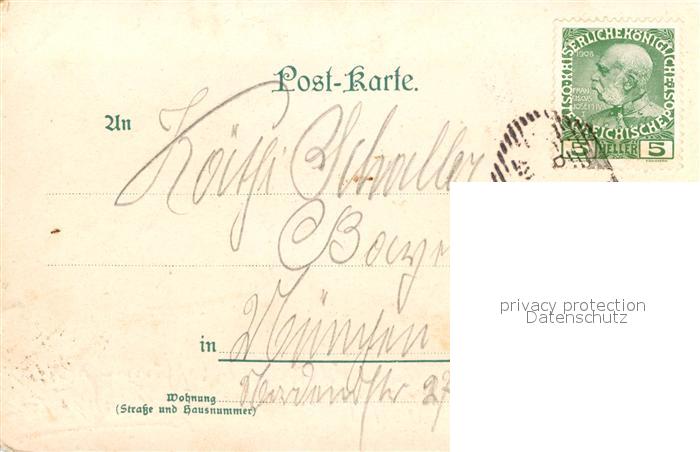 Post-Karte.
KAISERLICHE KÖNIGLICHE ÖSTERREICHISCHE POST
1908
FRANCISCVS JOSEPH I
5 HELLER 5
An Käthi Schaller
Baye
in München
27
Wohnung
(Straße und Hausnummer)
privacy protection
Datenschutz